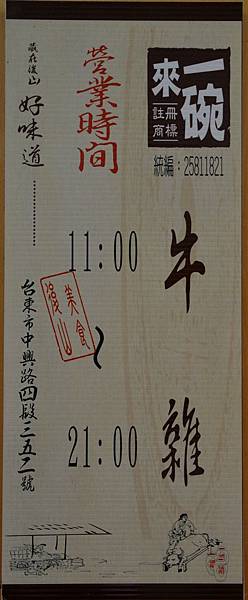 一碗
來
註冊
商標
統編：25811821
牛雜
營業時間
11:00
~
21:00
美食
後山
藏在後山
好味道............
台東市中興路四段三五二號